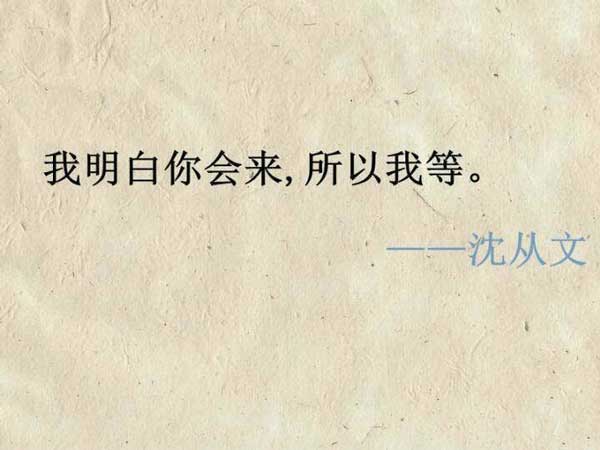 我明白你会来,所以我等。
——沈从文